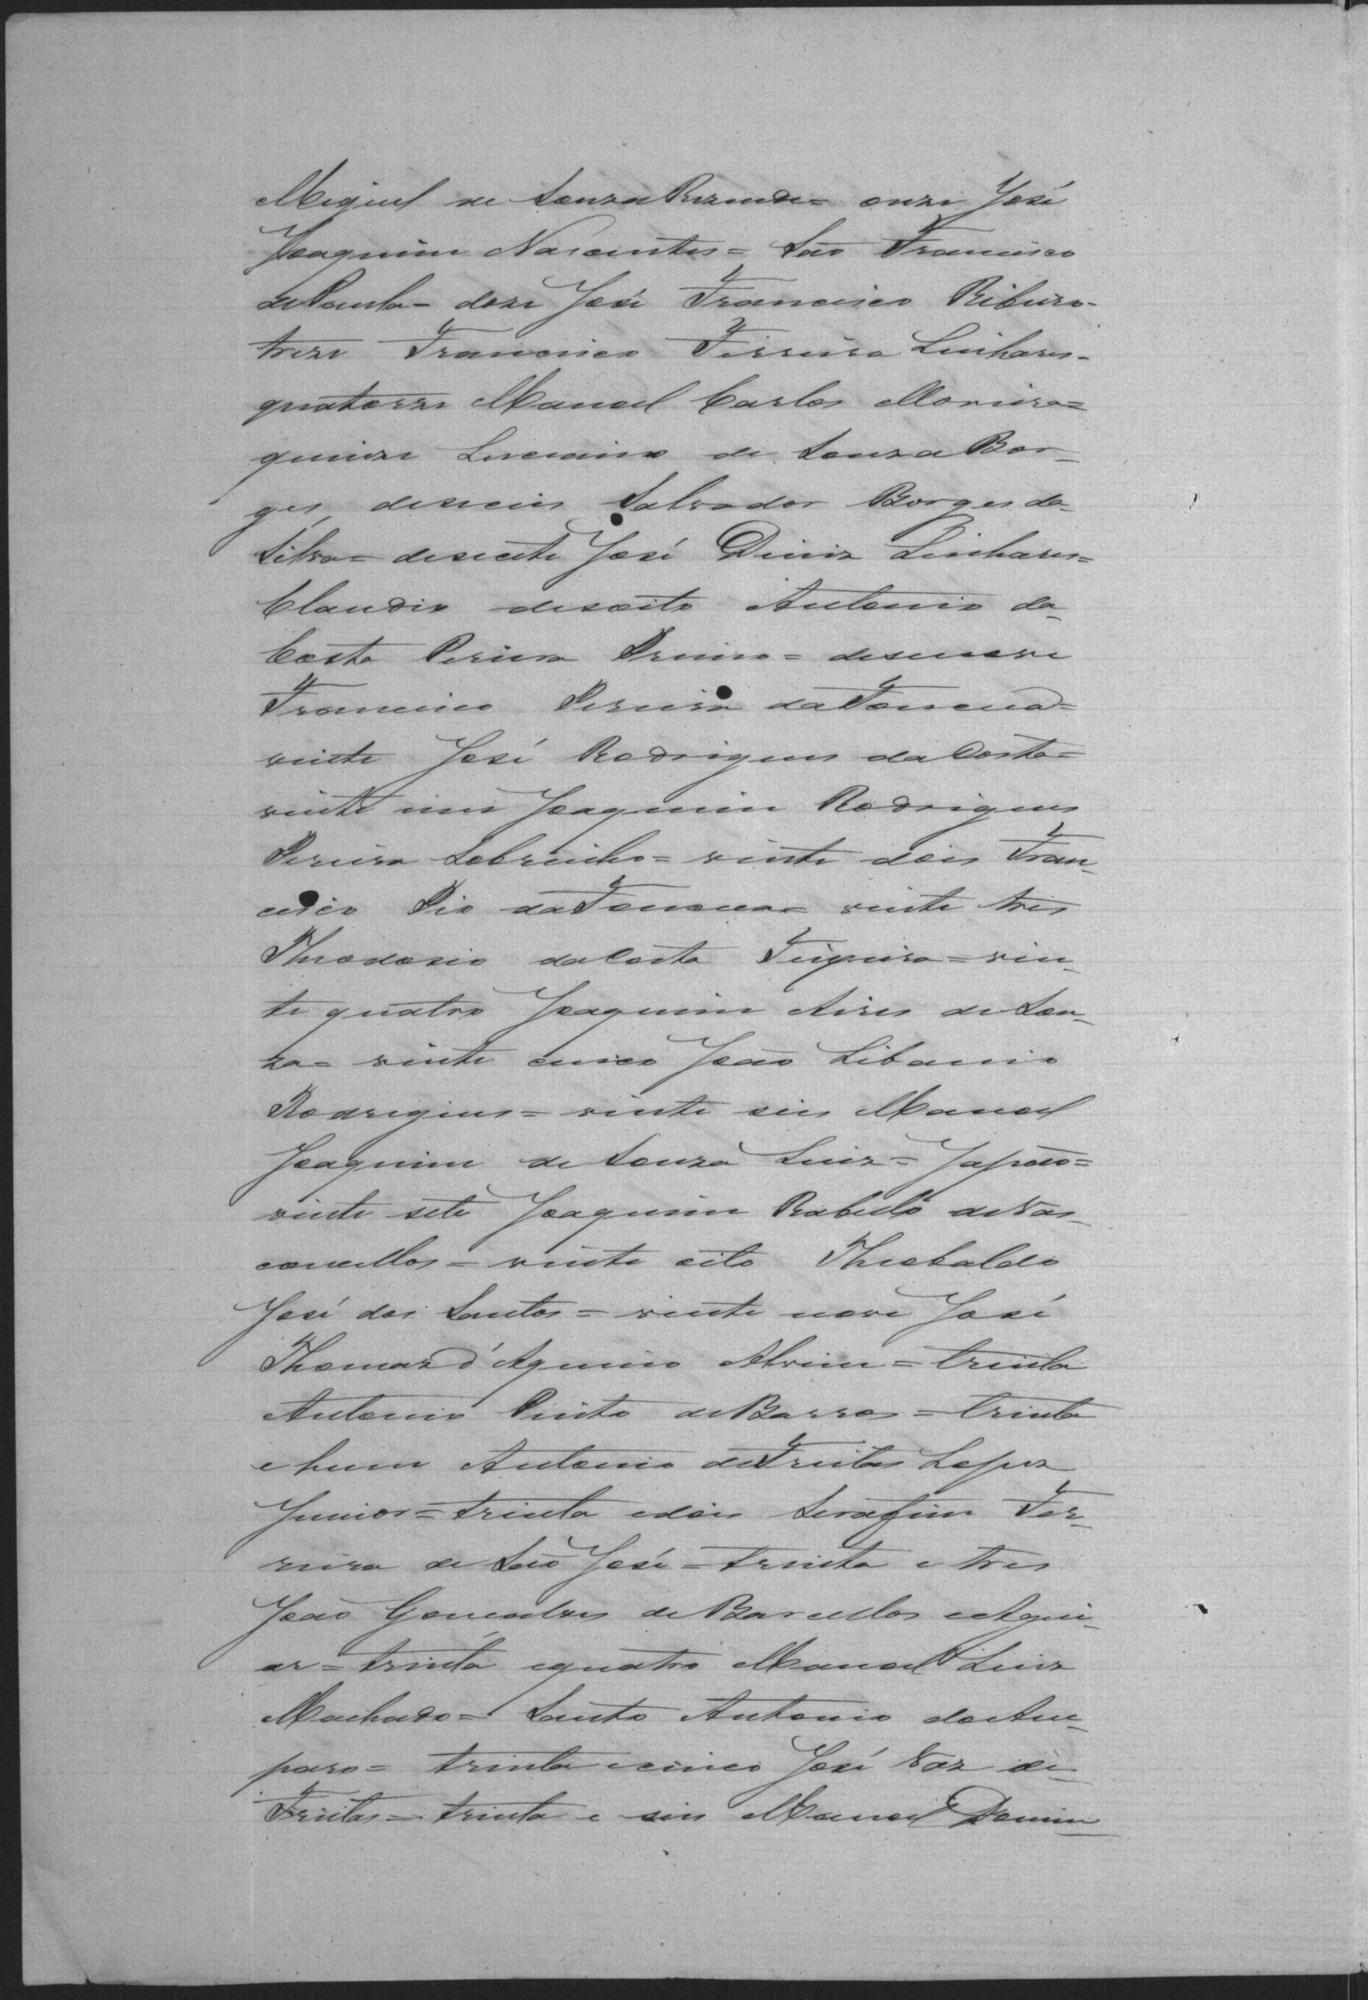 Miguel de Souza Rezende = onze José
Joaquim Nascentes = São Francisco
de Paula - doze José Francisco Ribeiro -
treze Francisco Ferreira Linhares -
quatorze Manoel Carlos Moreira =
quinze Luciano de Souza Bor_
ges, deseseis Salvador Borges da_
Silva = desecete José Diniz Linhares =
Claudio desoito Antonio da_
Costa Pereira = desenove
Francisco Pereira da Fonceca =
vinte José Rodrigues da Costa =
vinte um Joaquim Rodrigues
Pereira Sobrinho = vinte dois Fran_
cisco Pio da Fonceca = vinte tres
Theodosio da Costa Teixeira = vin_
te quatro Joaquim Aires de Sou_
za = vinte cinco João Libanio
Rodrigues = vinte seis Manoel
Joaquim de Souza Luiz = Japão =
vinte sete Joaquim Rabello de Vas_
concellos = vinte oito Theobaldo
José dos Santos = vinte nove José
Thomaz d'Aquino Alvim = trinta
Antonio Pinto de Barros = trinta
e hum Antonio de Freitas Lopes
Junior = trinta e dois Serafim Fer_
reira de São José = trinta e tres
João Gonçalves de Barcellos e Agui_
ar = trinta e quatro Manoel Luiz
Machado = Santo Antonio do Am_
paro = trinta e cinco José Vaz de_
Freitas = trinta e seis Manoel Domin_